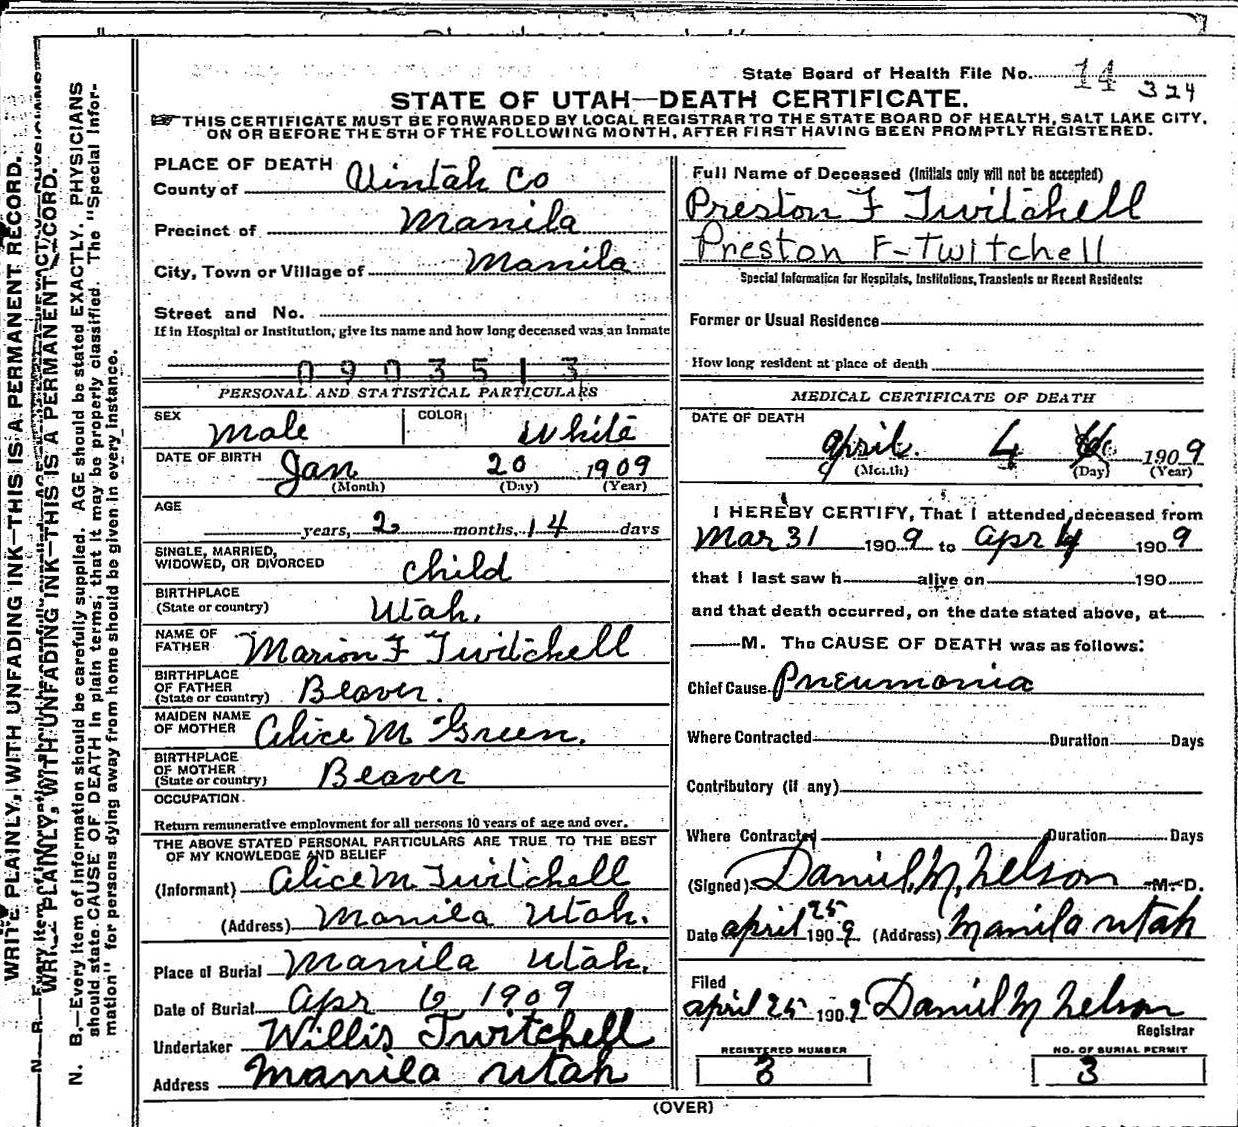 State Board of Health File No. 14 324
STATE OF UTAH—DEATH CERTIFICATE.
THIS CERTIFICATE MUST BE FORWARDED BY LOCAL REGISTRAR TO THE STATE BOARD OF HEALTH, SALT LAKE CITY,
ON OR BEFORE THE 5TH OF THE FOLLOWING MONTH, AFTER FIRST HAVING BEEN PROMPTLY REGISTERED.
WRITE PLAINLY, WITH UNFADING INK—THIS IS A PERMANENT RECORD.
WRITE PLAINLY, WITH UNFADING INK—THIS IS A PERMANENT RECORD.
N. B.—Every item of information should be carefully supplied. AGE should be stated EXACTLY. PHYSICIANS
should state CAUSE OF DEATH in plain terms, that it may be properly classified. The "Special Infor-
mation" for persons dying away from home should be given in every instance.
PLACE OF DEATH
County of Uintah Co
Precinct of Manila
City, Town or Village of Manila
Street and No.
If in Hospital or Institution, give its name and how long deceased was an Inmate
0903513
PERSONAL AND STATISTICAL PARTICULARS
SEX Male COLOR White
DATE OF BIRTH Jan 20 1909
(Month) (Day) (Year)
AGE
years, 2 months, 14 days
SINGLE, MARRIED,
WIDOWED, OR DIVORCED child
BIRTHPLACE
(State or country) Utah.
NAME OF
FATHER Marion F Twitchell
BIRTHPLACE
OF FATHER
(State or country) Beaver.
MAIDEN NAME
OF MOTHER Alice M Green.
BIRTHPLACE
OF MOTHER
(State or country) Beaver
OCCUPATION
Return remunerative employment for all persons 10 years of age and over.
THE ABOVE STATED PERSONAL PARTICULARS ARE TRUE TO THE BEST
OF MY KNOWLEDGE AND BELIEF
(Informant) Alice M Twitchell
(Address) Manila Utah.
Place of Burial Manila Utah.
Date of Burial Apr 6 1909
Undertaker Willis Twitchell
Address Manila Utah
Full Name of Deceased (Initials only will not be accepted)
Preston F Twitchell
Preston F-Twitchell
Special Information for Hospitals, Institutions, Transients or Recent Residents:
Former or Usual Residence
How long resident at place of death
MEDICAL CERTIFICATE OF DEATH
DATE OF DEATH
April. 4 1909
(Month) (Day) (Year)
I HEREBY CERTIFY, That I attended deceased from
Mar 31 1909 to Apr 4 1909
that I last saw h alive on 190
and that death occurred, on the date stated above, at
M. The CAUSE OF DEATH was as follows:
Chief Cause Pneumonia
Where Contracted Duration Days
Contributory (if any)
Where Contracted Duration Days
(Signed) Daniel M. Nelson M. D.
Date April 25 1909 (Address) Manila Utah
Filed
April 25 1909 Daniel M Nelson
Registrar
REGISTERED NUMBER NO. OF BURIAL PERMIT
3 3
(OVER)